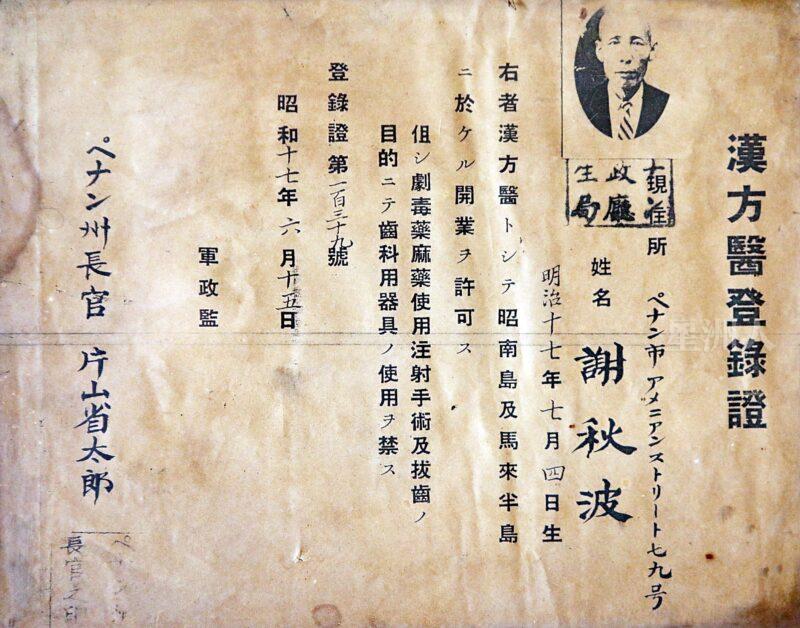 漢方醫登錄證
現住所 ペナン市アメニアンストリート七九号
政廳
生局
姓名 謝秋波
明治十七年七月四日生
右者漢方醫トシテ昭南島及馬來半島
ニ於ケル開業ヲ許可ス
伹シ劇毒藥麻藥使用注射手術及拔齒ノ
目的ニテ齒科用器具ノ使用ヲ禁ス
登錄證第一百三十九號
昭和十七年六月十五日
軍政監
ペナン州長官 片山省太郎
ペナン州
長官之印